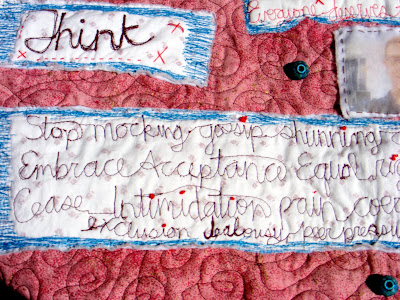 Think
Everyone deserves
Stop mocking, gossip shunning
Embrace Acceptance Equal
Cease Intimidation pain
exclusion Jealousy peer